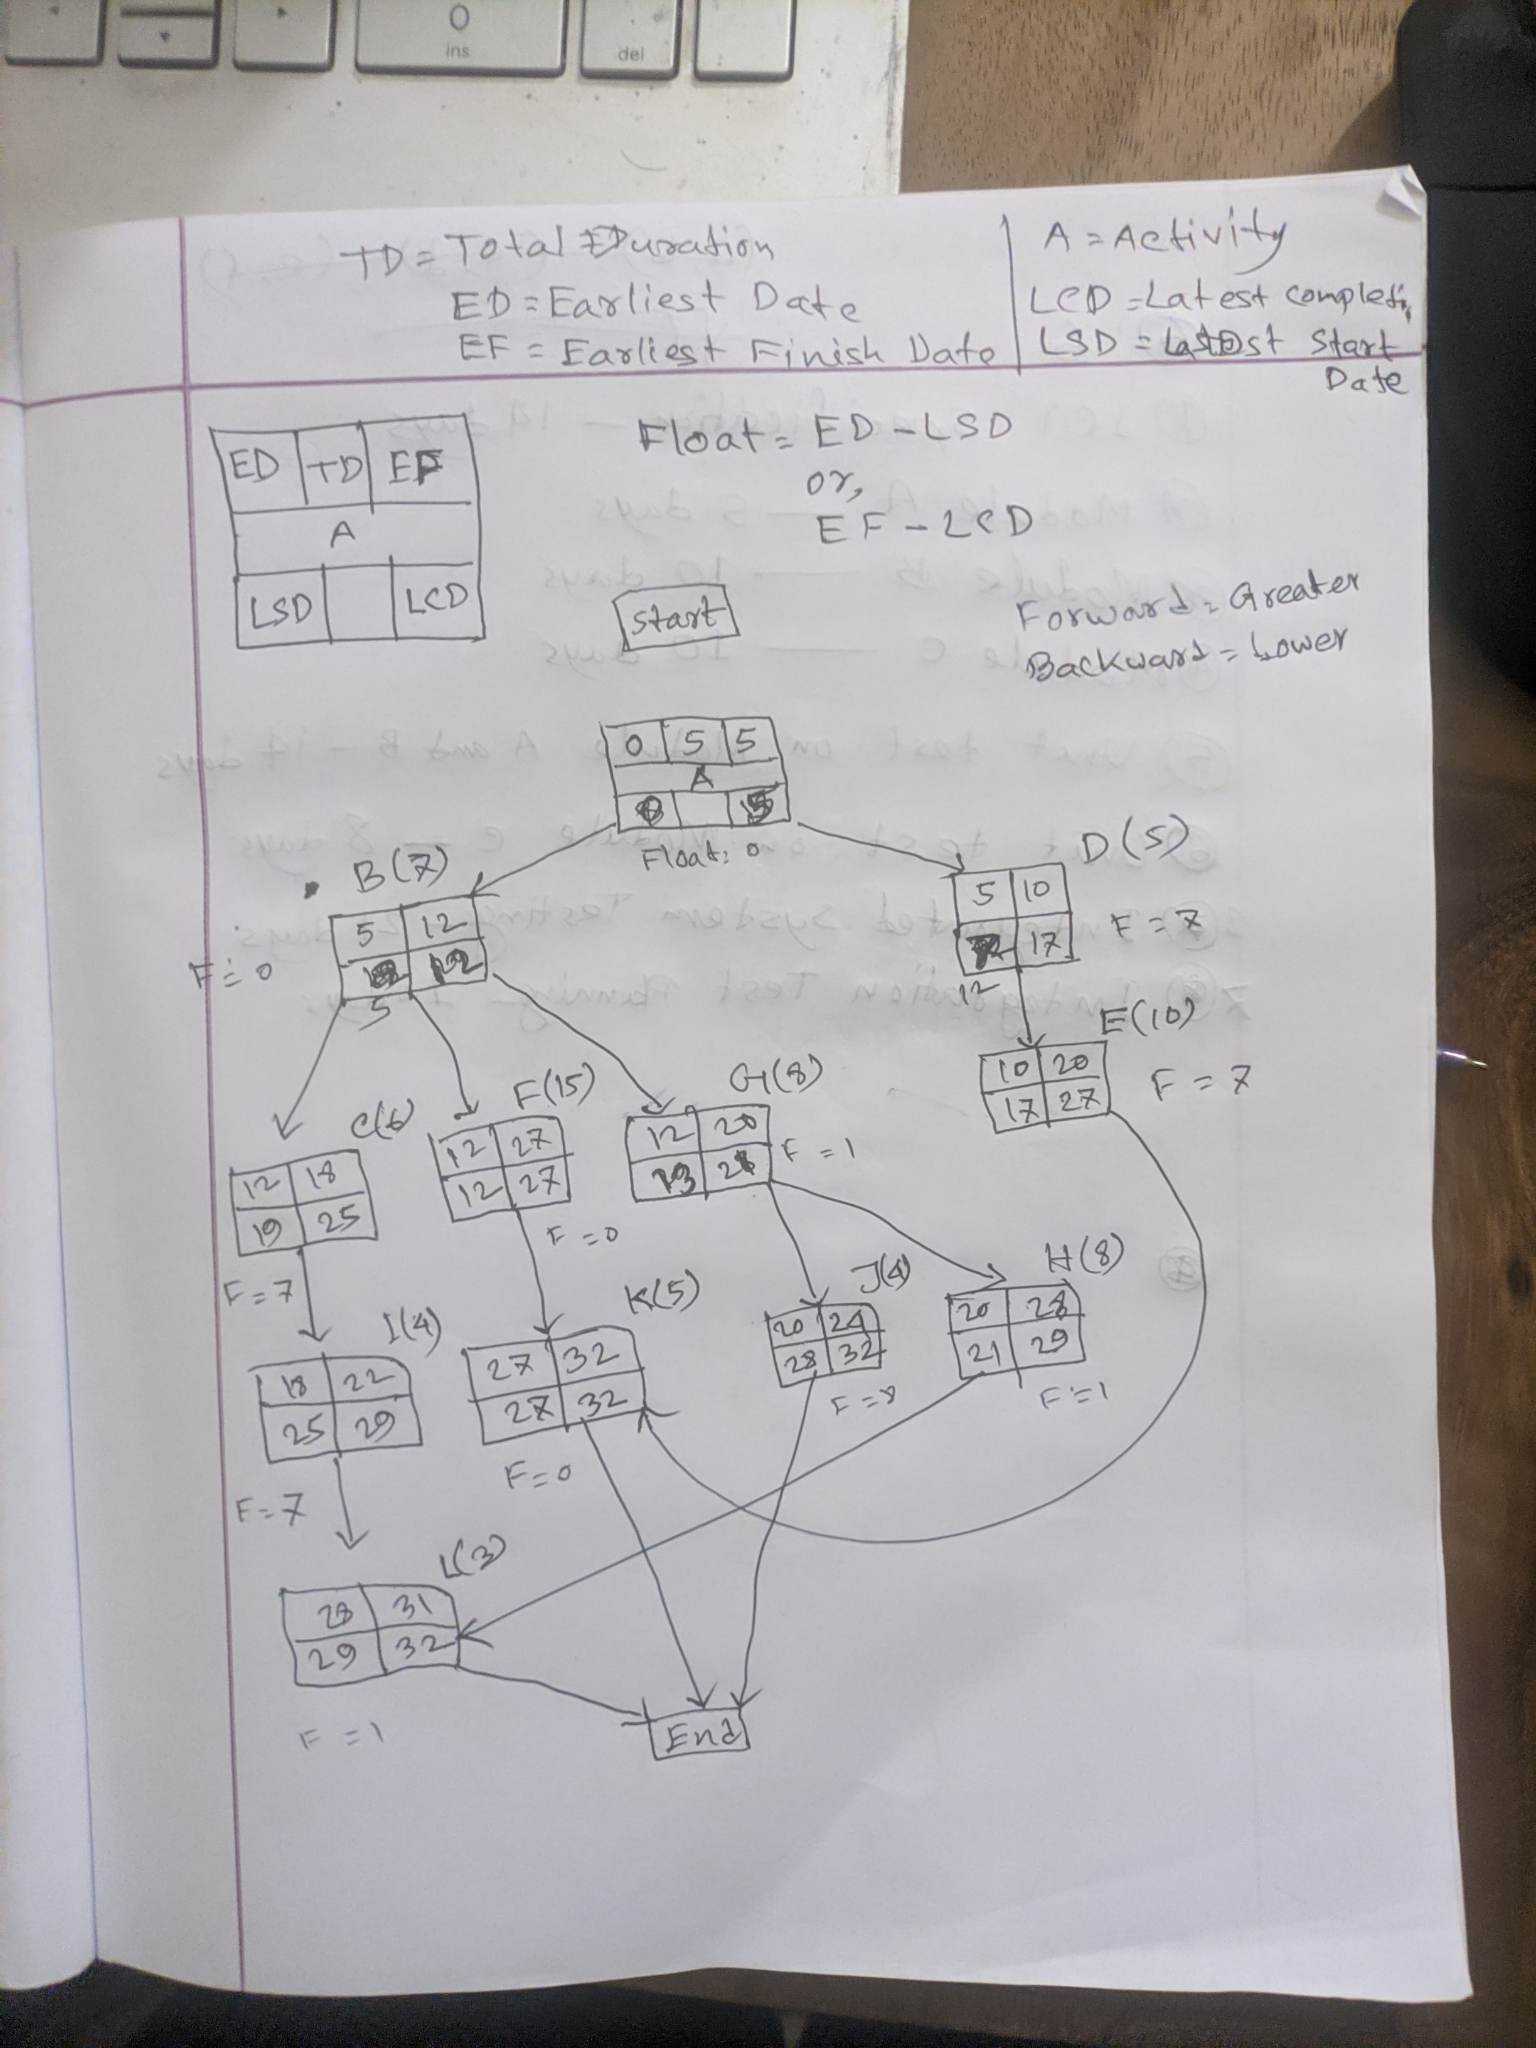 ins
del
TD = Total Duration
ED = Earliest Date
EF = Earliest Finish Date
A = Activity
LCD = Latest complet
LSD = Latest Start
Date
ED TD EF
A
LSD LCD
Float = ED - LSD
or,
EF - LCD
Start
Forward = Greater
Backward = Lower
0 5 5
A
0 5
Float: 0
B(7)
5 12
12
5
F = 0
D(5)
5 10
17
12
F = 7
E(10)
10 20
17 27
F = 7
C(6)
12 18
19 25
F = 7
F(15)
12 27
12 27
F = 0
G(8)
12 20
13 21
F = 1
I(4)
18 22
25 29
F = 7
K(5)
27 32
27 32
F = 0
J(4)
20 24
28 32
F = 8
H(8)
20 28
21 29
F = 1
L(3)
28 31
29 32
F = 1
End